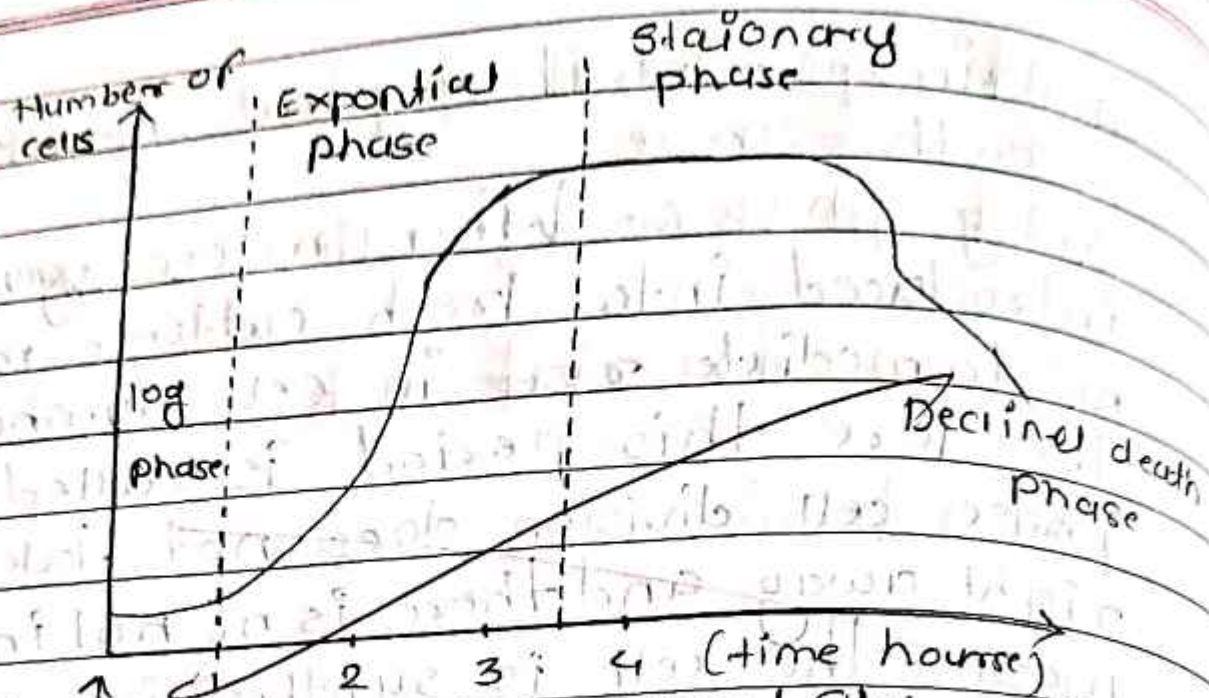 Number of
cells
Expontial
phase
Staionary
phase
log
phase
Declined death
phase
2 3 4 (time hourse)